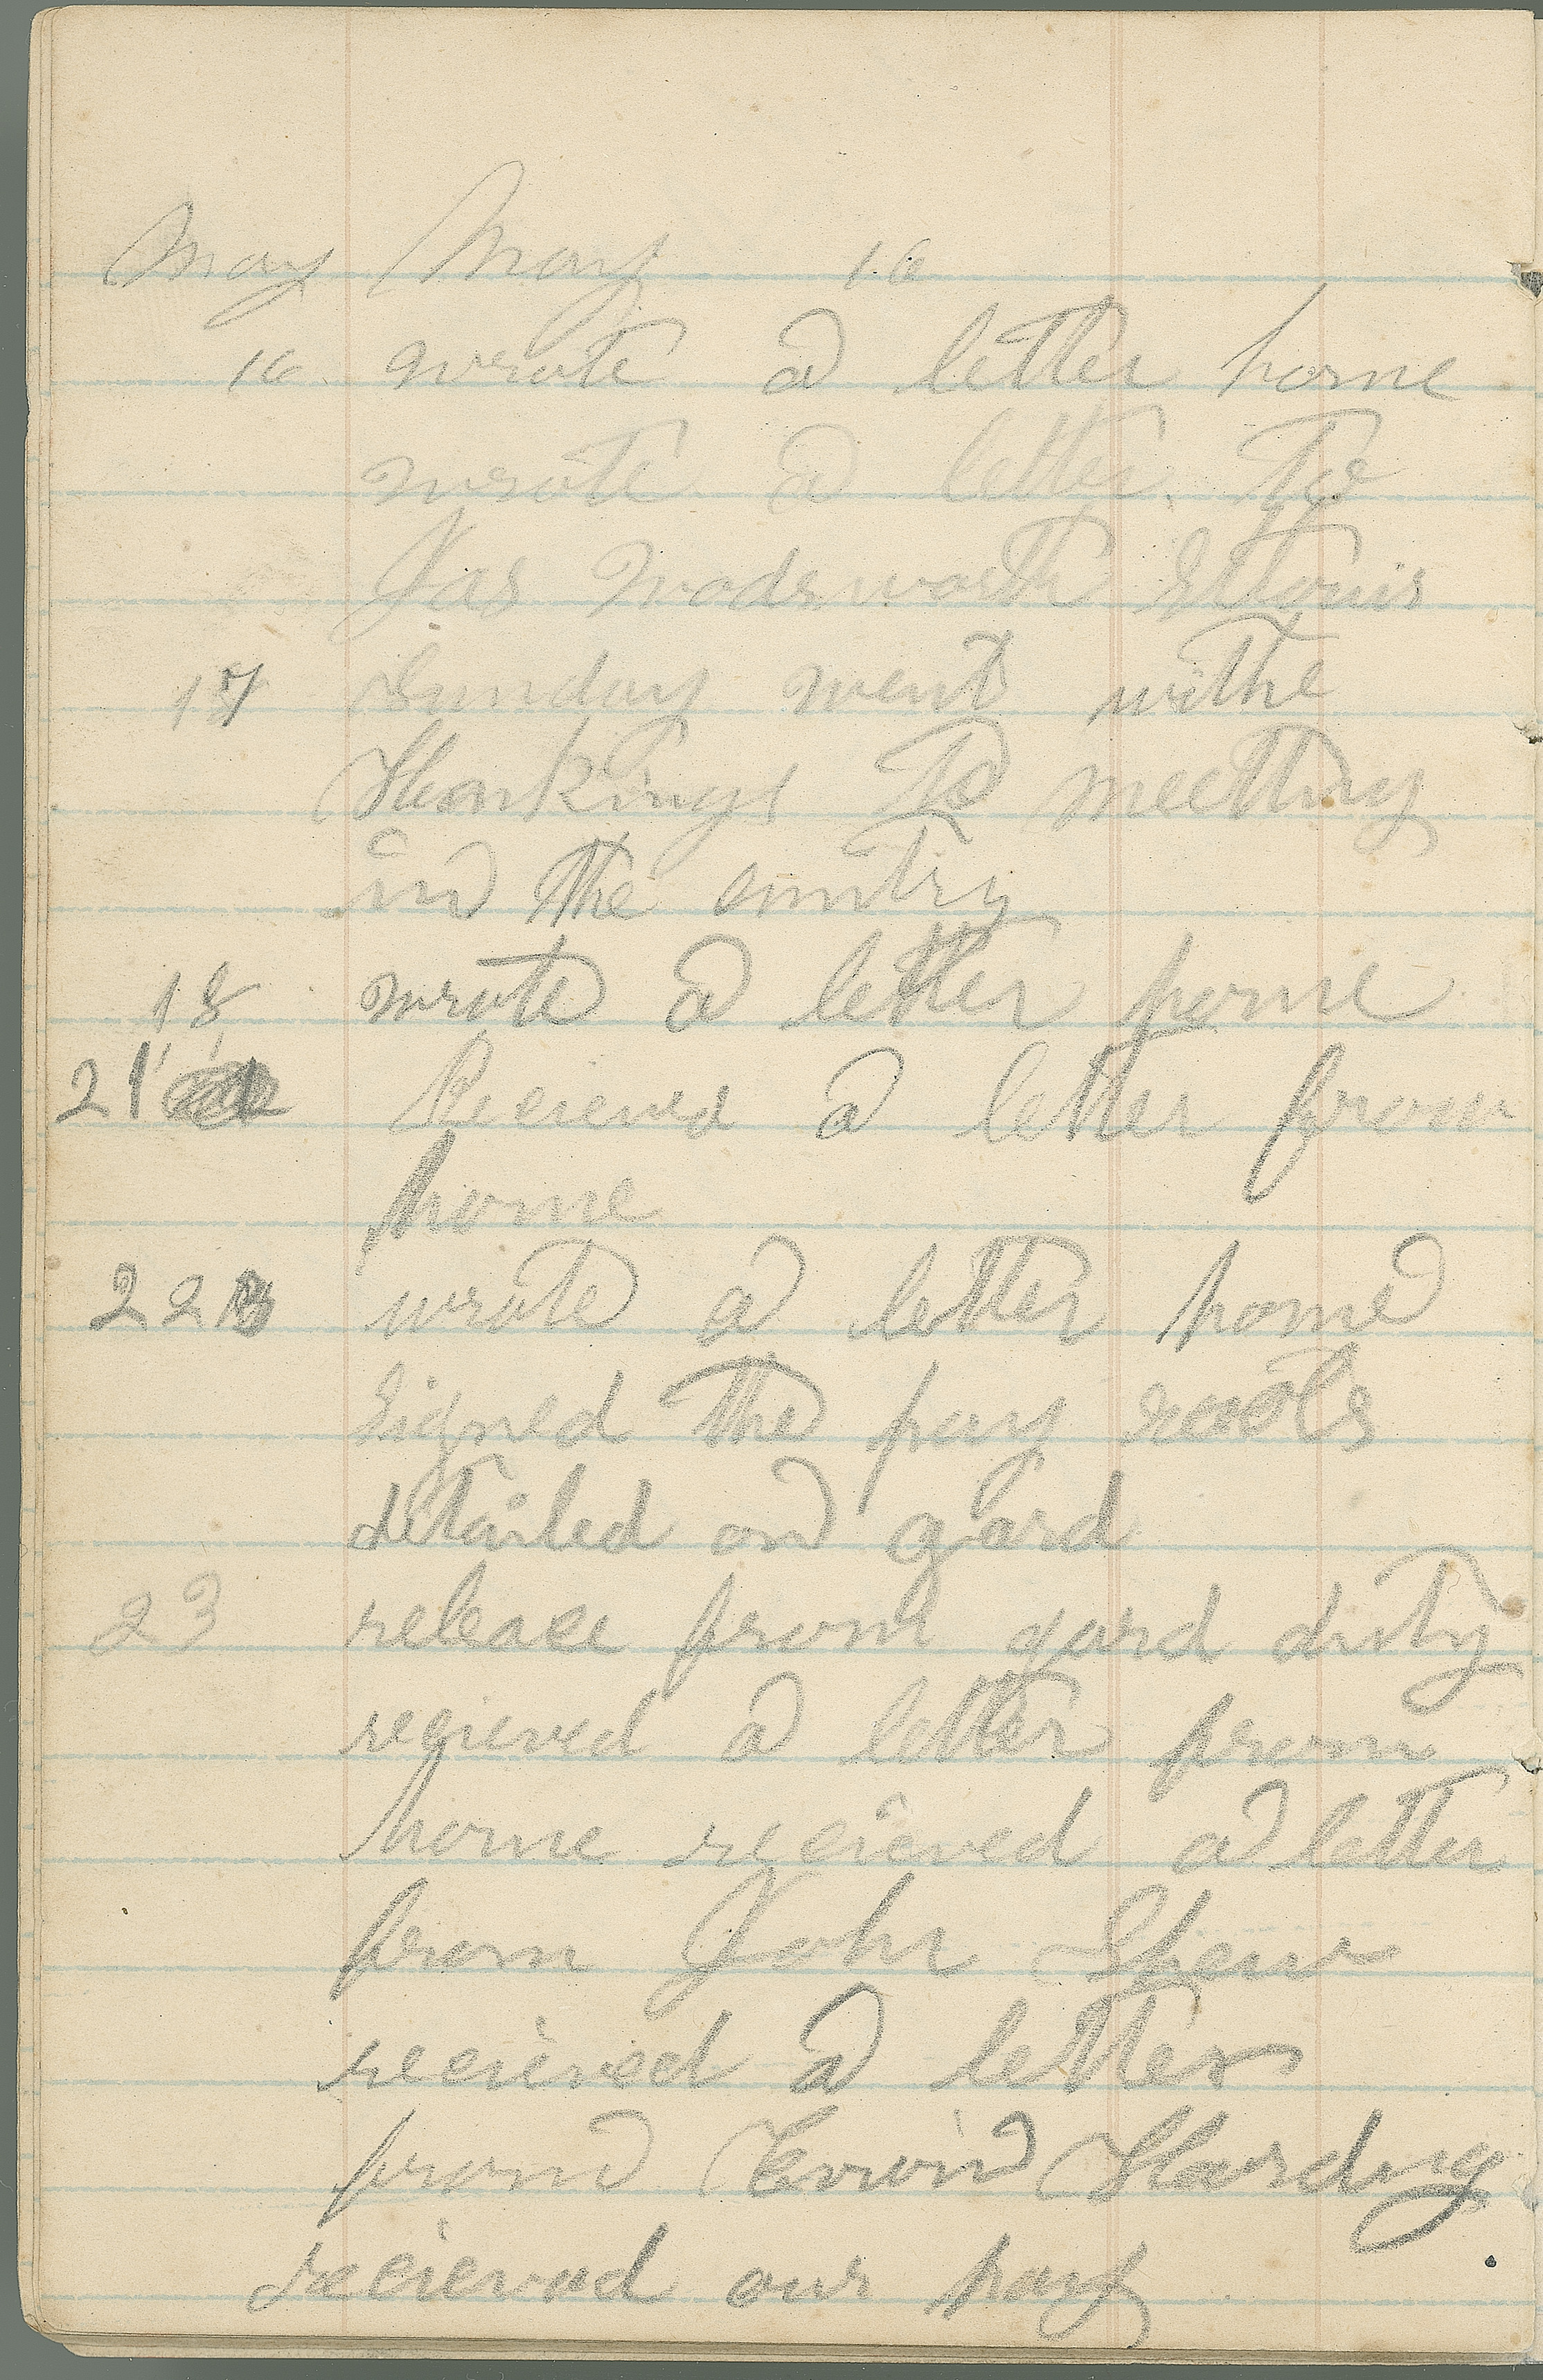 May May 16
16 wrote a letter home
wrote a letter to
Jas Wadsworth St Louis
17 Sunday went withe
Hawkings to meetting
in the cuntry
18 wrote a letter home
21 Recieved a letter from
home
22 wrote a letter home
signed the pay rools
detailed on gard
23 release from gard duty
recieved a letter from
home recieved a letter
from John Shew
recieved a letter
from Harding
recieved our pay